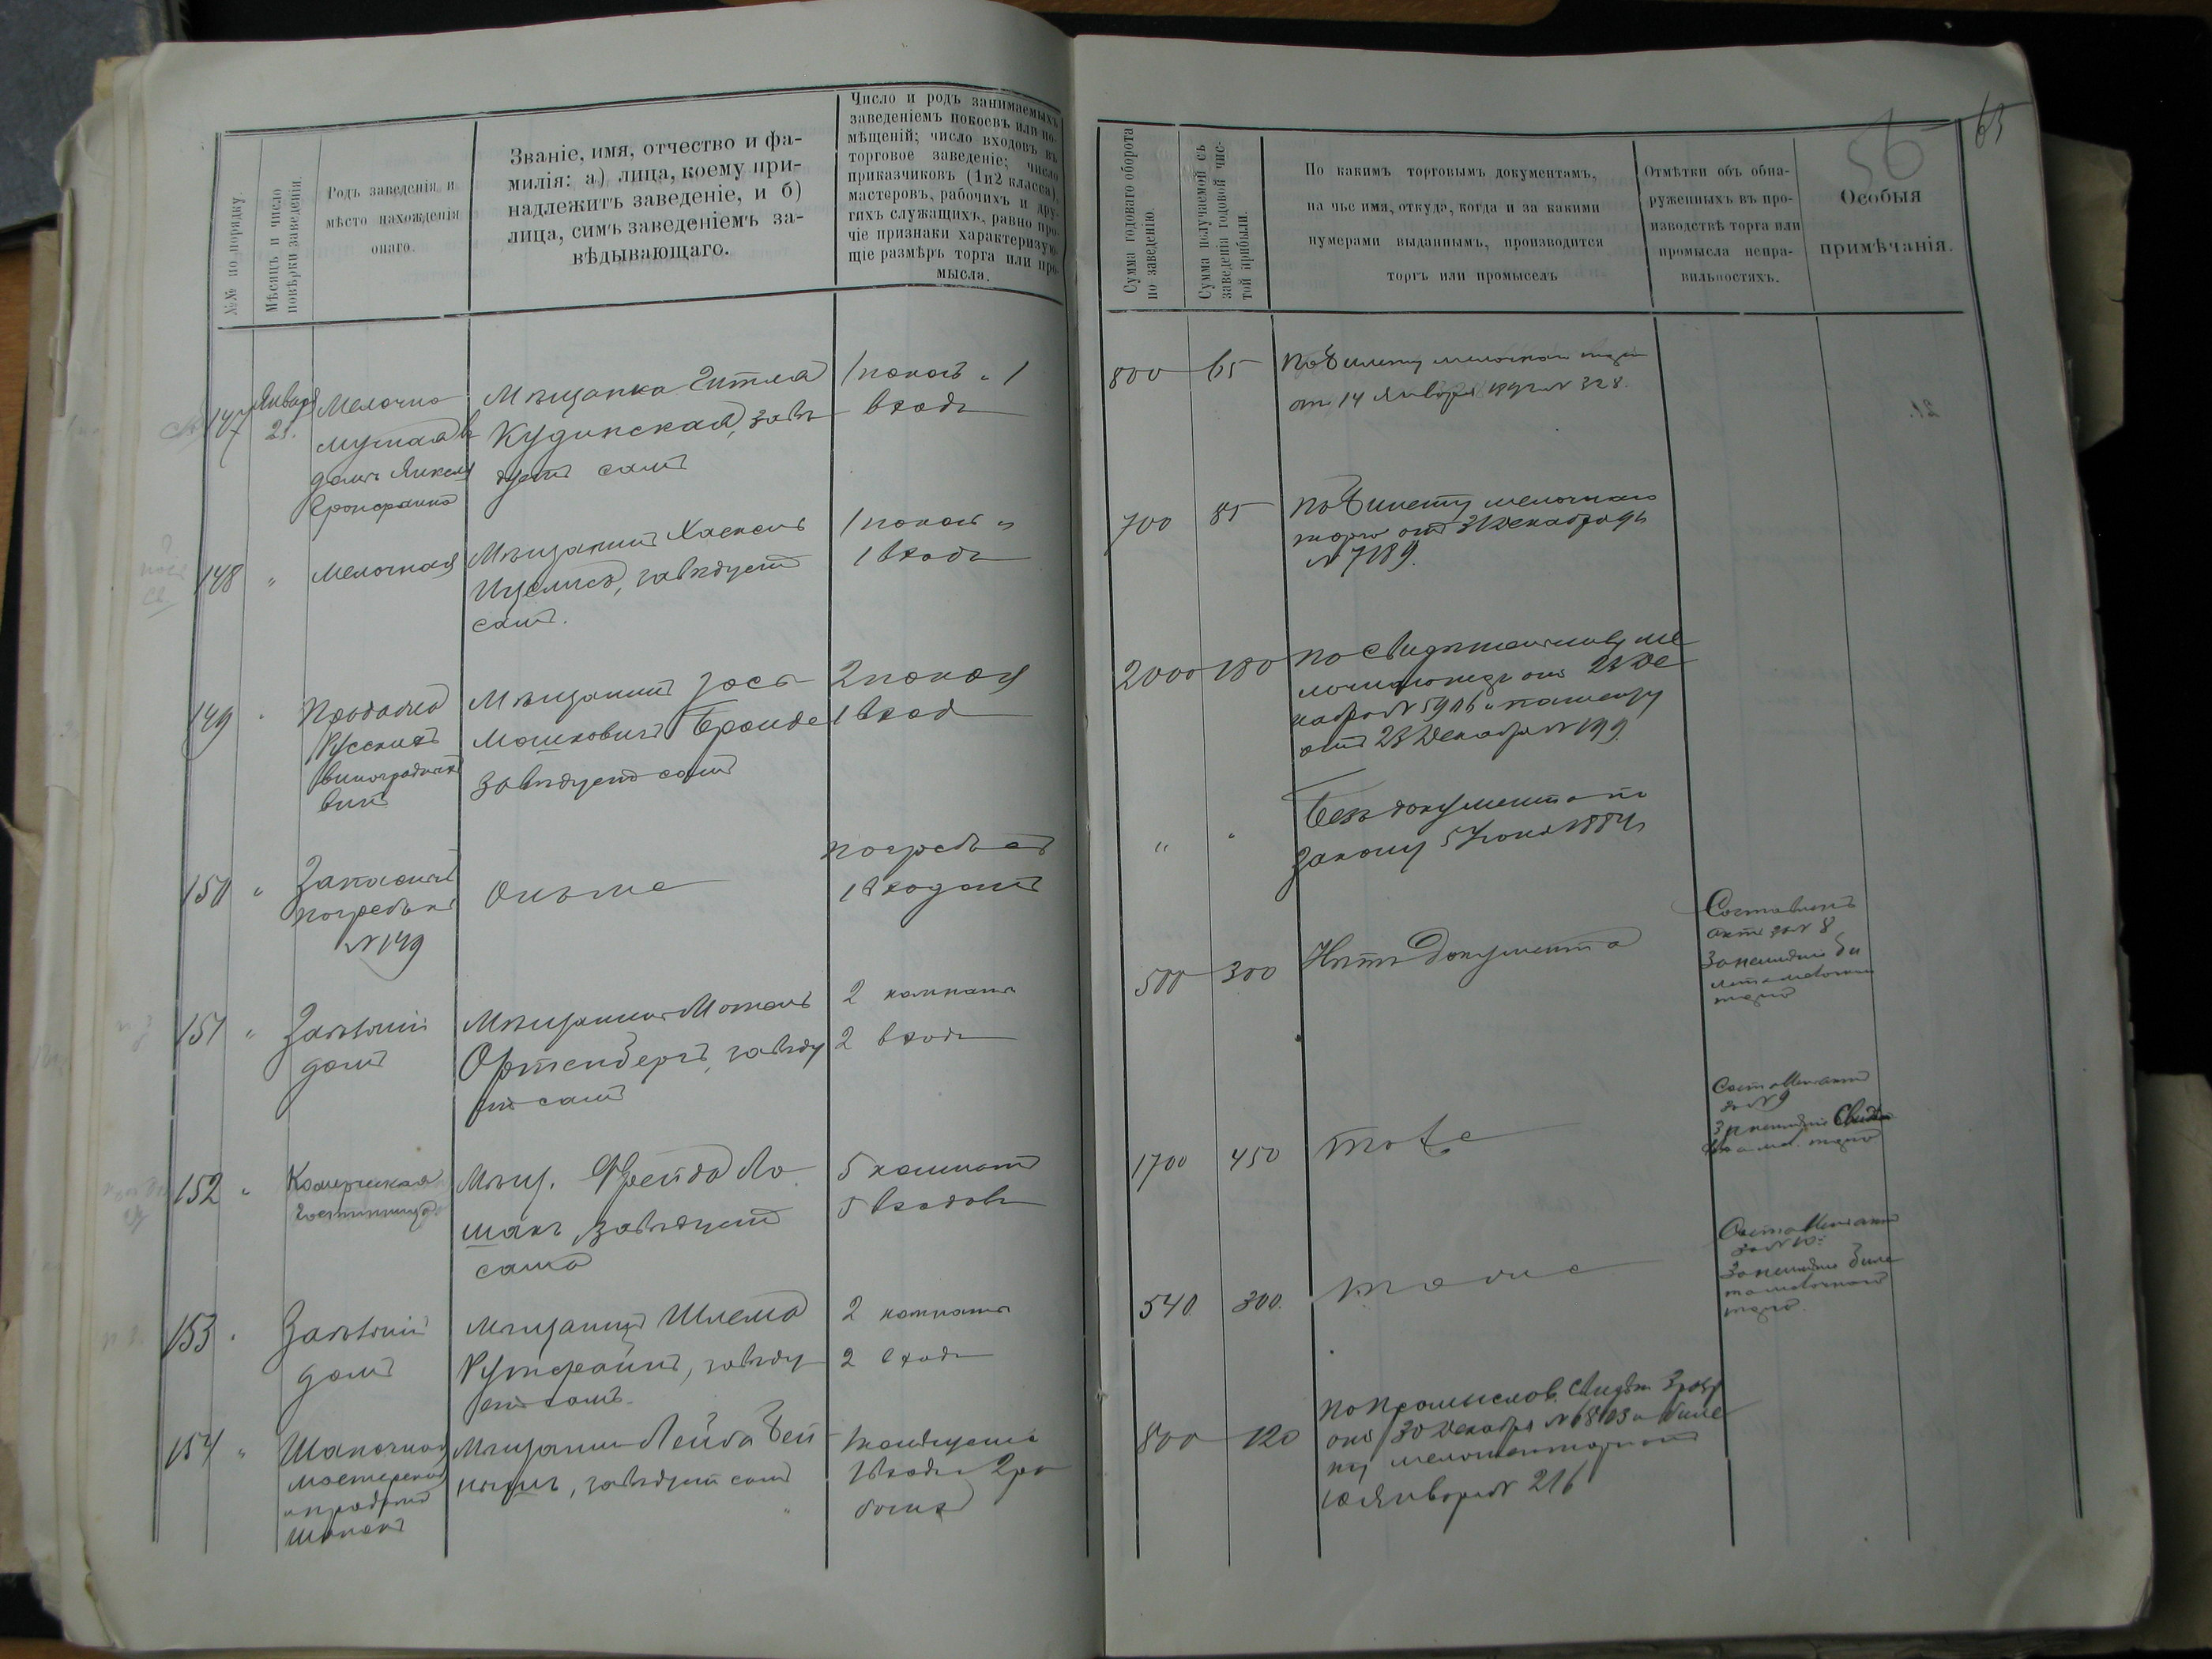 №№ по порядку.
Мѣсяцъ и число
повѣрки заведенія.
Родъ заведенія и
мѣсто нахожденія
онаго.
Званіе, имя, отчество и фа-
милія: а) лица, коему при-
надлежитъ заведеніе, и б)
лица, симъ заведеніемъ за-
вѣдывающаго.
Число и родъ занимаемыхъ
заведеніемъ покоевъ или по-
мѣщеній; число входовъ въ
торговое заведеніе; число
приказчиковъ (1 и 2 класса),
мастеровъ, рабочихъ и дру-
гихъ служащихъ, равно про-
чіе признаки характеризую-
щіе размѣръ торга или про-
мысла.
Сумма годоваго оборота
по заведенію.
Сумма получаемой съ
заведенія годовой чис-
той прибыли.
По какимъ торговымъ документамъ,
на чье имя, откуда, когда и за какими
нумерами выданнымъ, производится
торгъ или промыселъ
Отмѣтки объ обна-
руженныхъ въ про-
изводствѣ торга или
промысла непра-
вильностяхъ.
Особыя
примѣчанія.
56
65
147
Января
21.
Мелочно
домъ Янкеля
Мѣщанка Гитля
Кудинская, завѣ
дуетъ сама
1 покой и 1
входъ
800
65
По билету мелочнаго торга
отъ 14 Января 1892 № 328.
148
"
Мелочная
Мѣщанинъ Хаскель
завѣдуетъ
самъ.
1 покой и
1 входъ
700
85
По билету мелочнаго
торга отъ 31 Декабря
№ 7189.
149
"
Продажа
Русскихъ
виноградныхъ
винъ
Мѣщанинъ Іось
Мошковичъ Бронде
завѣдуетъ самъ
2 покоя
1 вход
2000
180
По свидѣтельству ме
лочнаго торг отъ 23 Де
кабря № 5906 и патенту
отъ 23 Декабря № 199.
150
"
Запасный
погребъ къ
№ 149
Онъ же
погребъ съ
1 входомъ
"
"
Безъ документа по
Закону 5 Іюня 1884 г.
151
"
Заѣзжій
домъ
Мѣщанинъ Мотель
Ортенбергъ, завѣду
етъ самъ
2 комнаты
2 входа
500
300
Нѣтъ документа
Составленъ
актъ за № 8
За неимѣніе би
лета мелочнаго
торга
152
"
Комерческая
гостинница
Мѣщ. Фрейда Ло
шакъ, завѣдуетъ
сама
5 комнатъ
5 входовъ
1700
450
тоже
Составленъ актъ
за № 9
За неимѣніе Свидѣт
на мел. торгъ
153
"
Заѣзжій
домъ
Мѣщанинъ Шлема
Рутфайнъ, завѣду
етъ самъ.
2 комнаты
2 входа
540
300.
тоже
Составленъ актъ
за № 10.
За неимѣніе биле
та мелочнаго
торга.
154
"
Шапочная
мастерская
и продажа
шапокъ
Мѣщанинъ Лейба
завѣдуетъ самъ
1 входъ 2 ра
бочихъ
800
120
По Промыслов. Свидѣт. 3 разр
отъ 30 Декабря № 6803 и биле
ту мелочнаго торга отъ
10 Января № 216